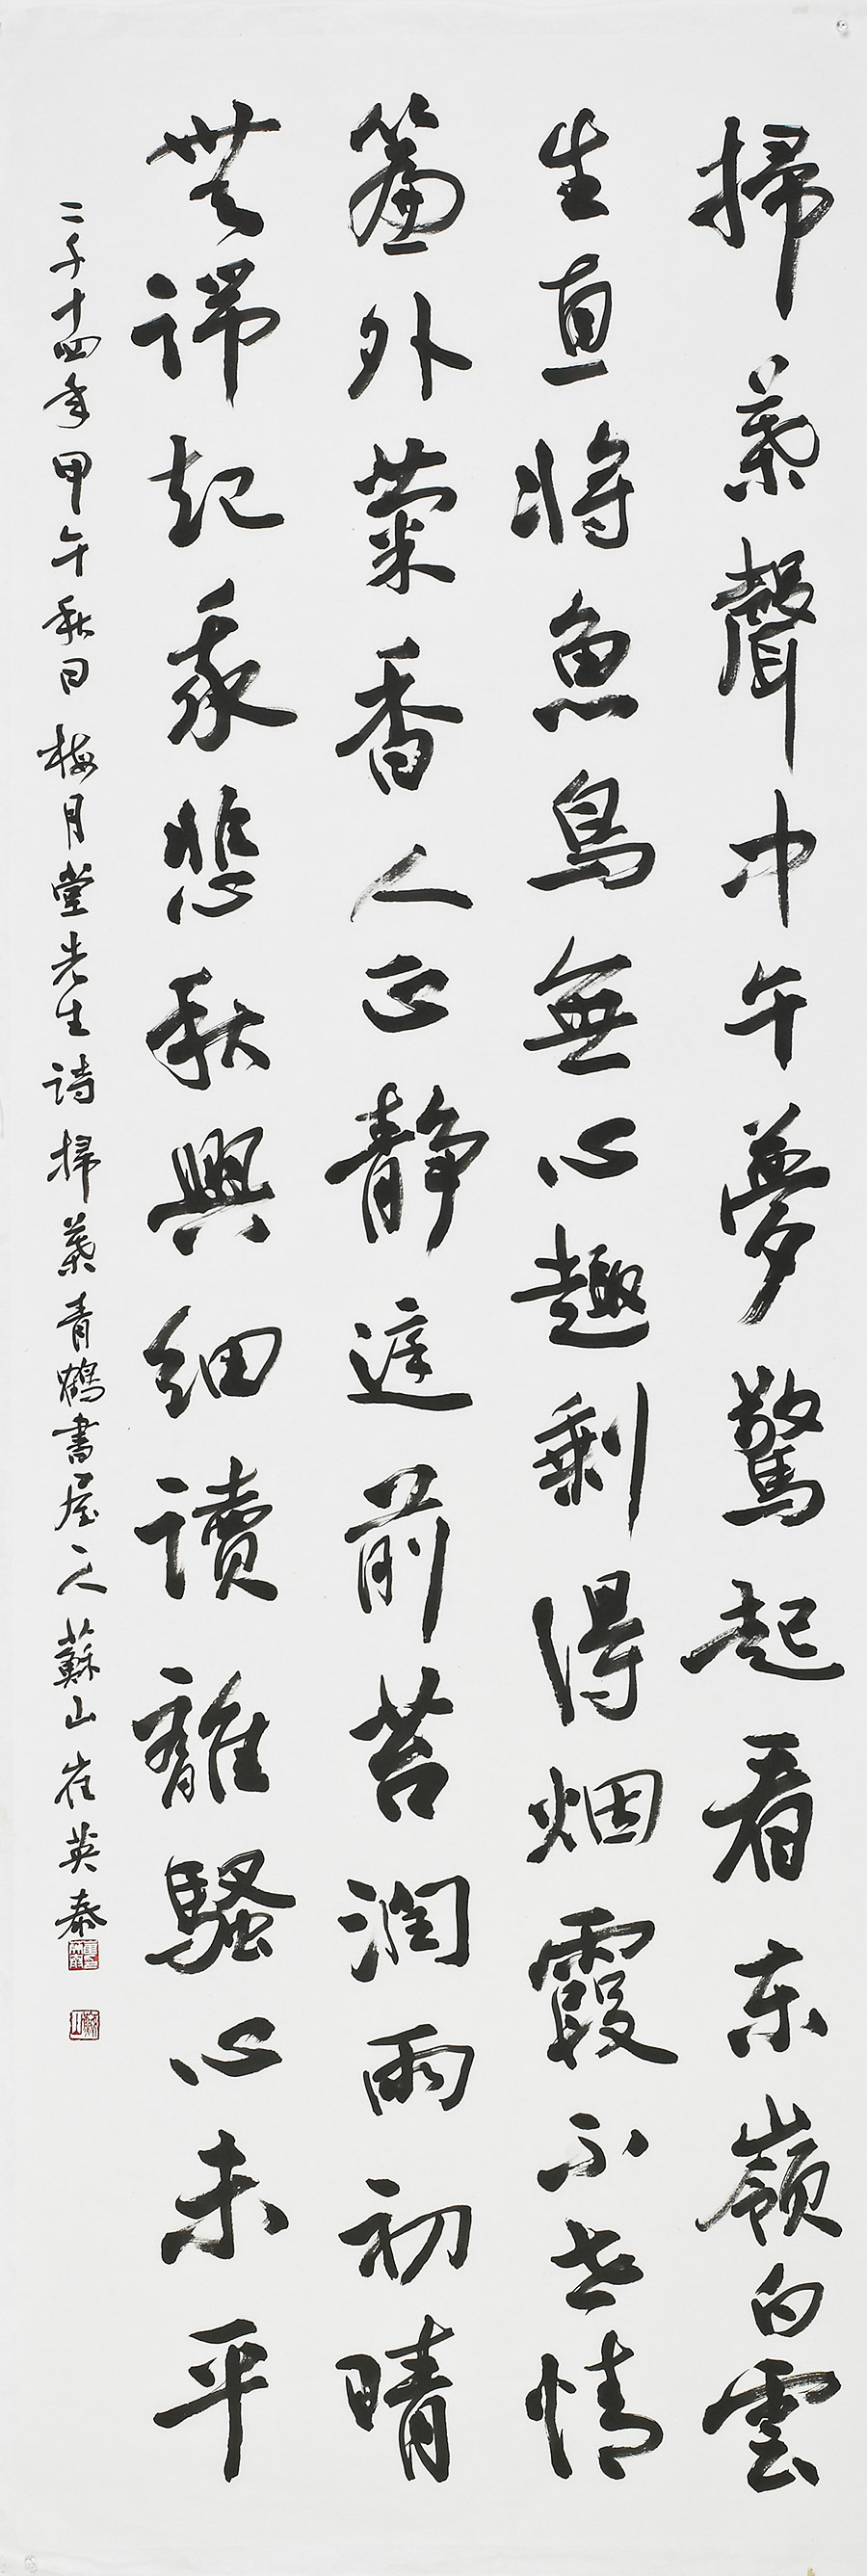 掃葉聲中午夢驚起看東嶺白雲
生直將魚鳥無心趣剩得烟霞不世情
簾外菊香人正静庭前苔潤雨初晴
無端起我悲秋興細讀離騷心未平
二千十四年甲午秋日梅月堂先生詩掃葉青鶴書屋主人蘇山崔英泰
蘇山